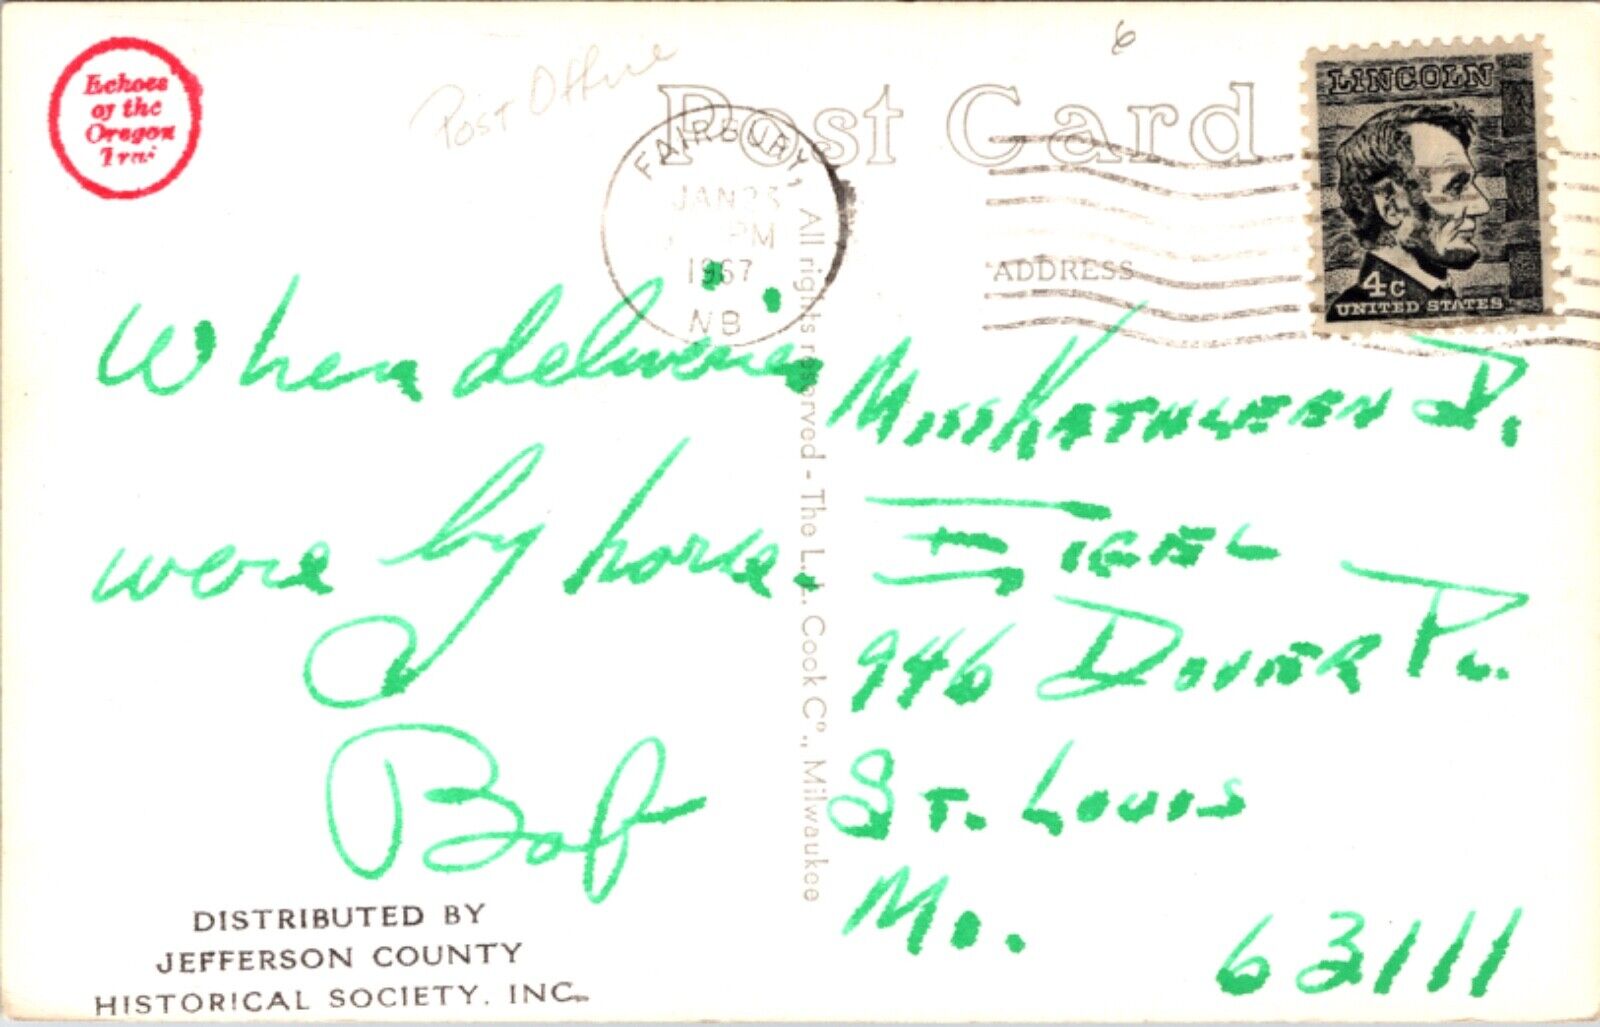 Echoes
of the
Oregon
Trai
Post Office
6
Post Card
FAIRBURY,
JAN 23
PM
1967
NB
ADDRESS
LINCOLN
4c
UNITED STATES
When deliveries
were by horse.
Bob
Miss Kathleen D.
Sigel
946 Dover Pl.
St. Louis
Mo. 63111
All rights reserved - The L.L. Cook Co., Milwaukee
DISTRIBUTED BY
JEFFERSON COUNTY
HISTORICAL SOCIETY, INC.